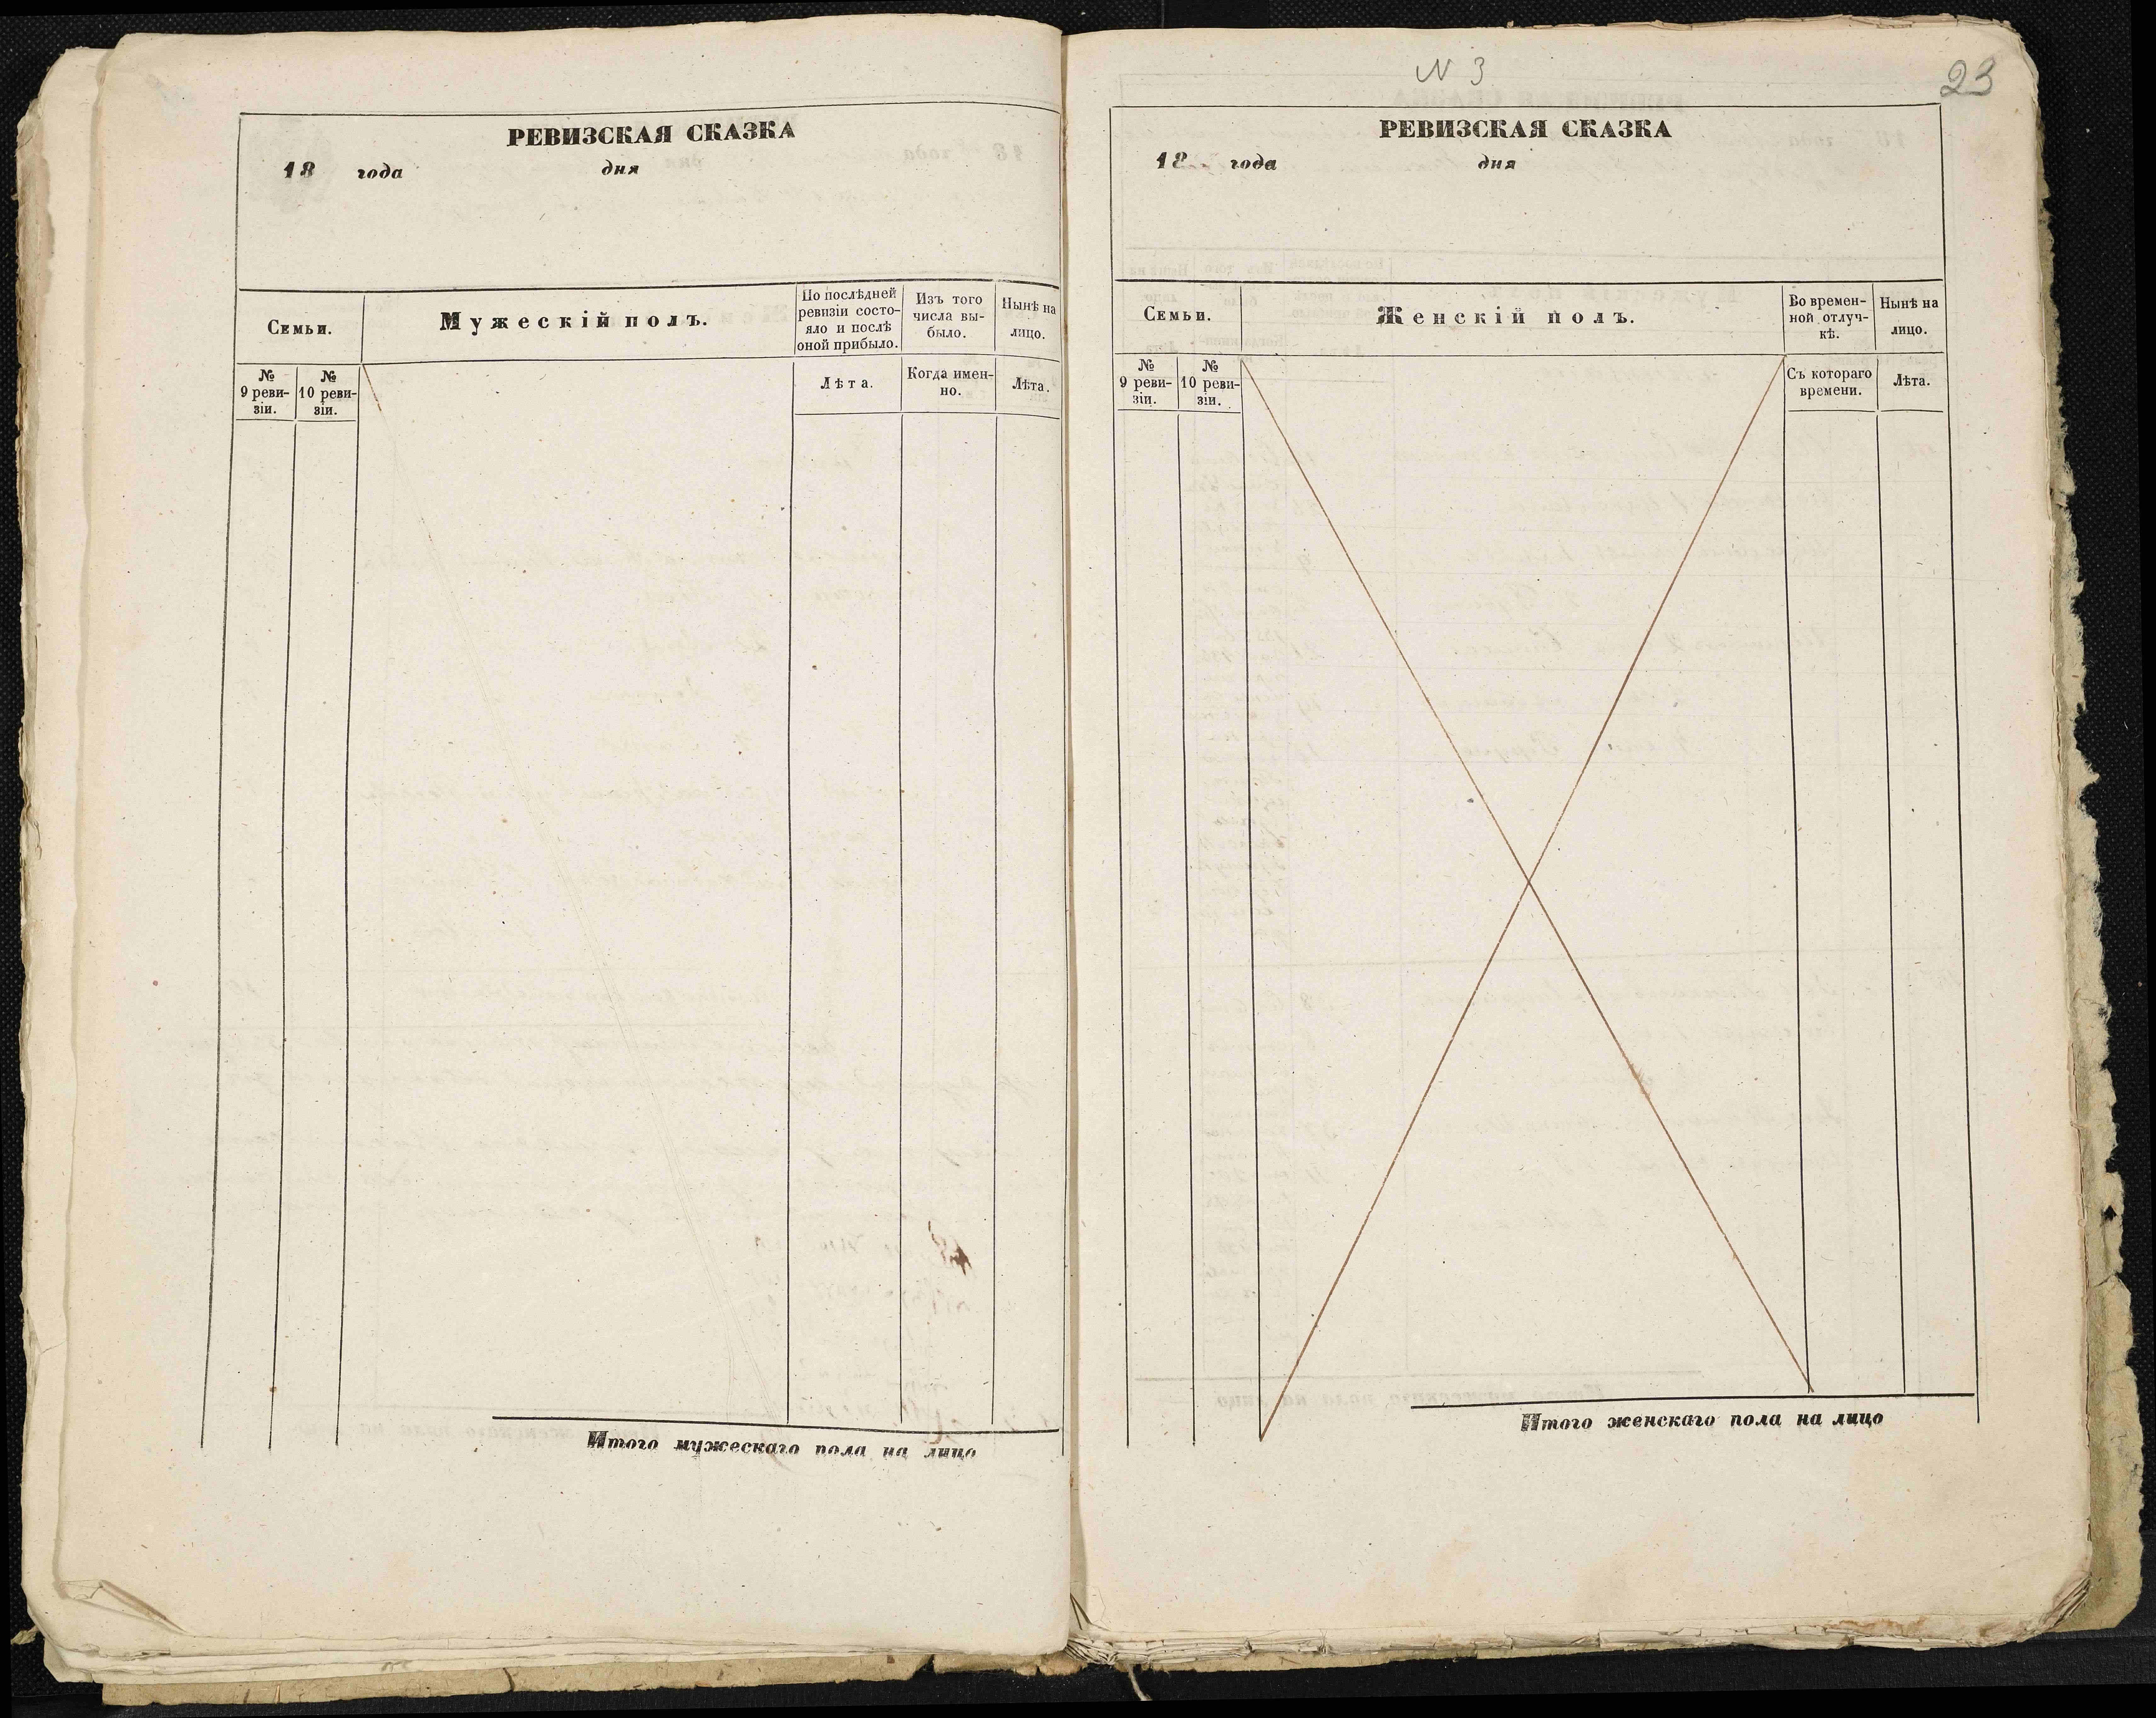 РЕВИЗСКАЯ СКАЗКА
18 года дня
Семьи.
Мужескій полъ.
По послѣдней
ревизіи состо-
яло и послѣ
оной прибыло.
Изъ того
числа вы-
было.
Нынѣ на
лицо.
№
9 реви-
зіи.
№
10 реви-
зіи.
Лѣта.
Когда имен-
но.
Лѣта.
Итого мужескаго пола на лицо
N 3
23
РЕВИЗСКАЯ СКАЗКА
18 года дня
Семьи.
Женскій полъ.
Во времен-
ной отлуч-
кѣ.
Нынѣ на
лицо.
№
9 реви-
зіи.
№
10 реви-
зіи.
Съ котораго
времени.
Лѣта.
Итого женскаго пола на лицо